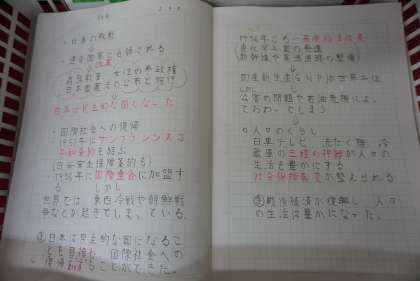 ・日本の戦敗
↓
・連合国軍に占領される
↓改革
農地改革 女性の参政権
日本国憲法の公布と施行
↓
日本は民主的な国になった
・国際社会への復帰
1951年にサンフランシスコ
平和条約を結ぶ
(日米安全保障条約も)
1956年に国際連合に加盟す
る しかし
世界では 東西冷戦や朝鮮戦
争などが起きてしまっている。
③日本は民主的な国になるこ
とを目指し 国際社会への
復帰をすることができた。
1956年ごろ〜高度経済成長
重化学工業の発達
新幹線や高速道路の整備
↓
国民総生産(GNP)が世界二位
しかし
公害の問題や石油危機によっ
ておわってしまう
◎人々のくらし
白黒テレビ 洗たく機 冷
蔵庫の三種の神器が人々の
生活を豊かにする
社会保障制度が整えられる
③戦後経済が復興し 人々
の生活は豊かになった。